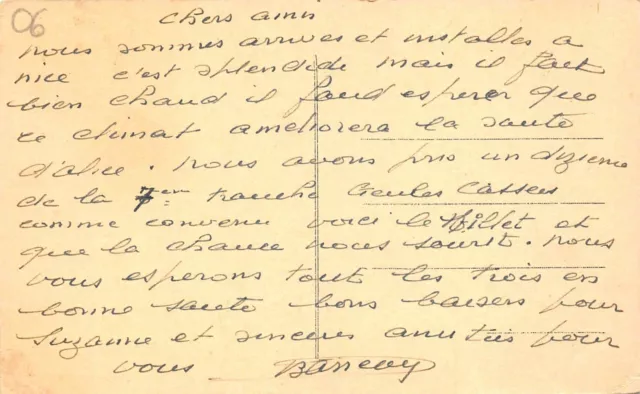 06
chers amis
nous sommes arrives et installes a
nice c'est splendide mais il fait
bien chaud il faud esperer que
ce climat ameliorera la sante
d'alice. nous avons pris un dizieme
de la 7em tranche Geules Cassees
comme convenu voici le Billet et
que la chance nous sourit. nous
vous esperons tout les trois en
bonne sante bons baisers pour
Suzanne et sinceres amities pour
vous